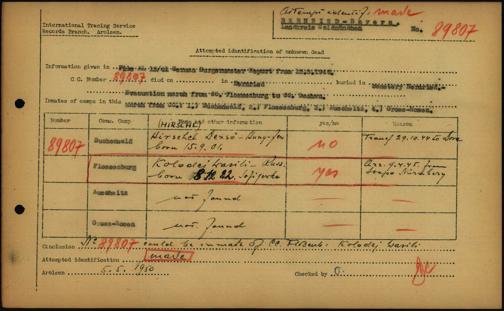 Attempt identif. made
International Tracing Service
Records Branch. Arolsen.
BERNRIED-Bavaria.
Landkreis
No. 89807
Attempted identification of unknown dead
Information given in German Burgomaster Report from
C.C. Number 89807 died on in Bernried buried in Cemetery Bernried.
Evacuation march from CC. Flossenburg to CC. Dachau.
Inmates of camps in this march from CC.: 1.) Buchenwald, 2.) Flossenburg, 3.) Auschwitz, 4.) Gross-Rosen.
Number
Conc. Camp
Name and other information
yes/no
(HIRSCHL)
89807
Buchenwald
Hirschel Dezsö - Hungarian
born 15.9.01.
no
Transf. 29.10.44 to
Flossenburg
Kolodej Wasili - Russ.
born 8.11.22.
yes
Arr. 9.4.45 from
Stapo Nürnberg
Auschwitz
not found
—
—
Gross-Rosen
not found
—
—
Conclusion No 89807 could be inmate of CC. Flossenb.: Kolodej Wasili
Attempted identification made
Arolsen 5.5.1950
Checked by